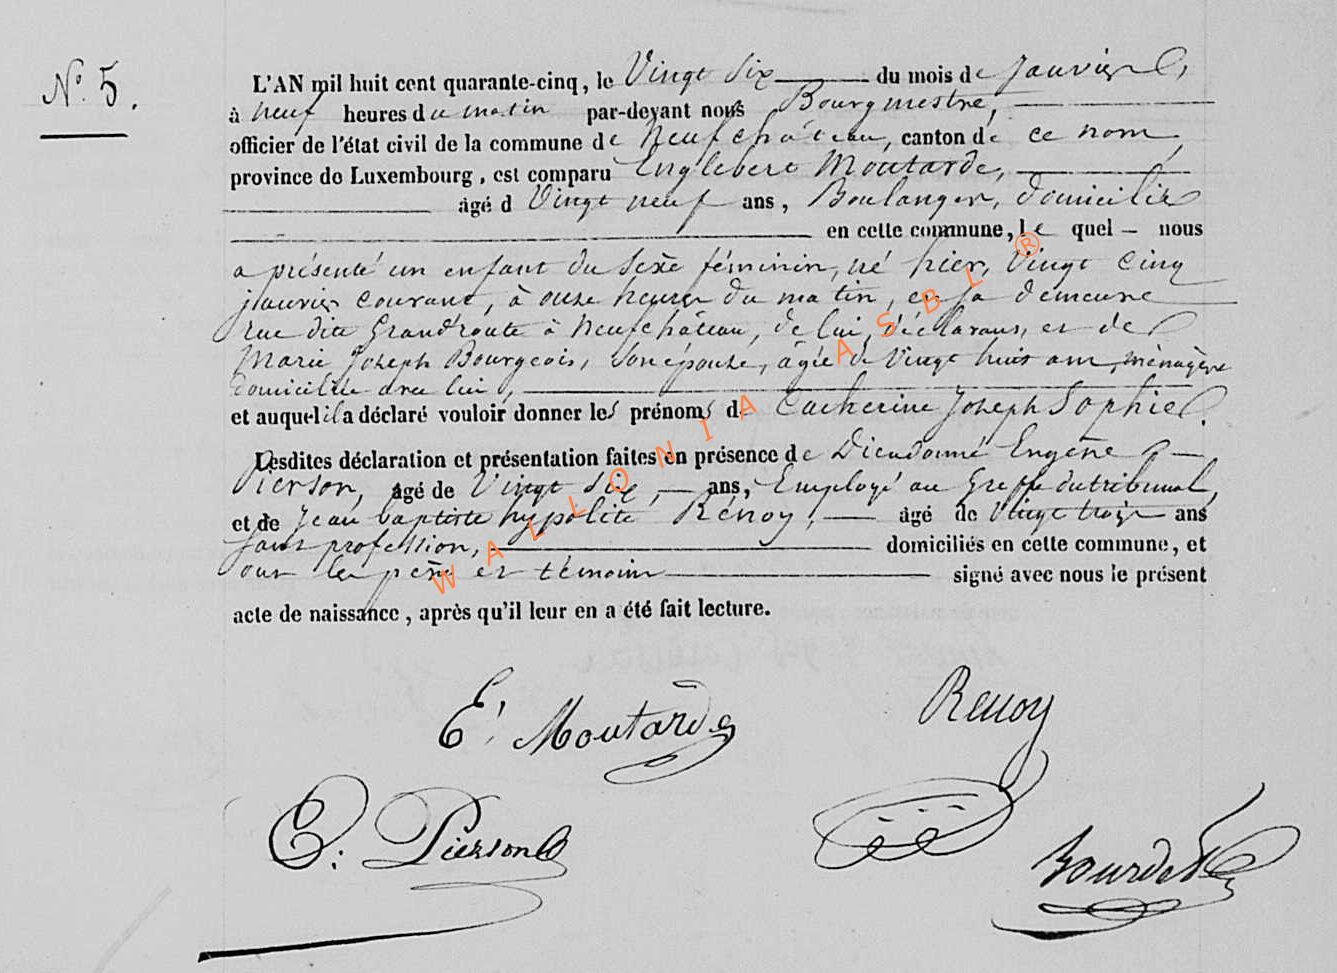 N° 5.
L'AN mil huit cent quarante-cinq, le Vingt Six du mois de Janvier,
à neuf heures du matin par-devant nous Bourgmestre,
officier de l'état civil de la commune de Neufchâteau, canton de ce nom,
province de Luxembourg, est comparu Englebert Moutarde,
âgé d Vingt neuf ans, Boulanger, domicilié
en cette commune, le quel – nous
a présenté un enfant du Sexe féminin, né hier, Vingt cinq
janvier courant, à onze heures du matin, en sa demeure
rue dite Grand'route à Neufchâteau, de lui, déclarant, et de
Marie Joseph Bourgeois, Son épouse, âgée de Vingt huit ans, ménagère
domiciliée avec lui,
et auquel il a déclaré vouloir donner les prénoms de Catherine Joseph Sophie.
Lesdites déclaration et présentation faites en présence de Dieudonné Eugène
Pierson, âgé de Vingt Six, ans, Employé au Greffe du tribunal,
et de Jean baptiste hypolite Rénoy, âgé de Vingt trois ans
Sans profession, domiciliés en cette commune, et
ont les père et témoins signé avec nous le présent
acte de naissance, après qu'il leur en a été fait lecture.
E! Moutarde
Renoy
E. Pierson
WALLONIA ASBL ®